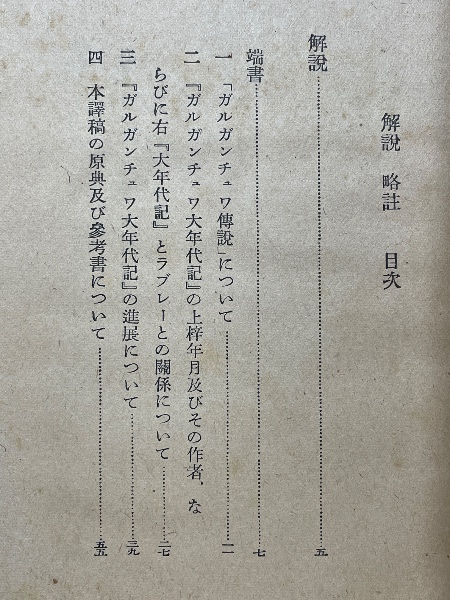 解說 略註 目次
解說……………………………五
端書……………………………七
一 「ガルガンチュワ傳說」について……………………一一
二 『ガルガンチュワ大年代記』の上梓年月及びその作者、な
らびに右『大年代記』とラブレーとの關係について………二七
三 『ガルガンチュワ大年代記』の進展について……………三九
四 本譯稿の原典及び參考書について……………………五五